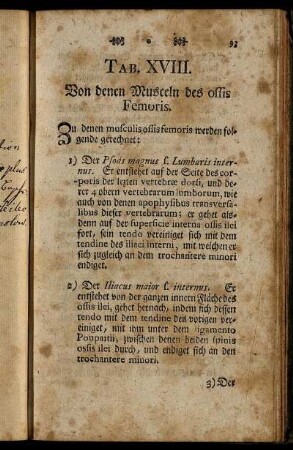 93
TAB. XVIII.
Von denen Musceln des ossis
Femoris.
Zu denen musculis ossis femoris werden fol-
gende gerechnet:
1) Der Psoas magnus s. Lumbaris inter-
nus. Er entstehet auf der Seite des cor-
poris der lezten vertebræ dorsi, und de-
rer 4 obern vertebrarum lumborum, wie
auch von denen apophysibus transversa-
libus dieser vertebrarum; er gehet als-
denn auf der superficie interna ossis ilei
fort, sein tendo vereiniget sich mit dem
tendine des iliaci interni, mit welchen er
sich zugleich an dem trochantere minori
endiget.
2) Der Iliacus maior s. internus. Er
entstehet von der ganzen innern Fläche des
ossis ilei, gehet hernach, indem sich dessen
tendo mit dem tendine des vorigen ver-
einiget, mit ihm unter dem ligamento
Poupartii, zwischen denen beiden spinis
ossis ilei durch, und endiget sich an den
trochantere minori.
3) Der